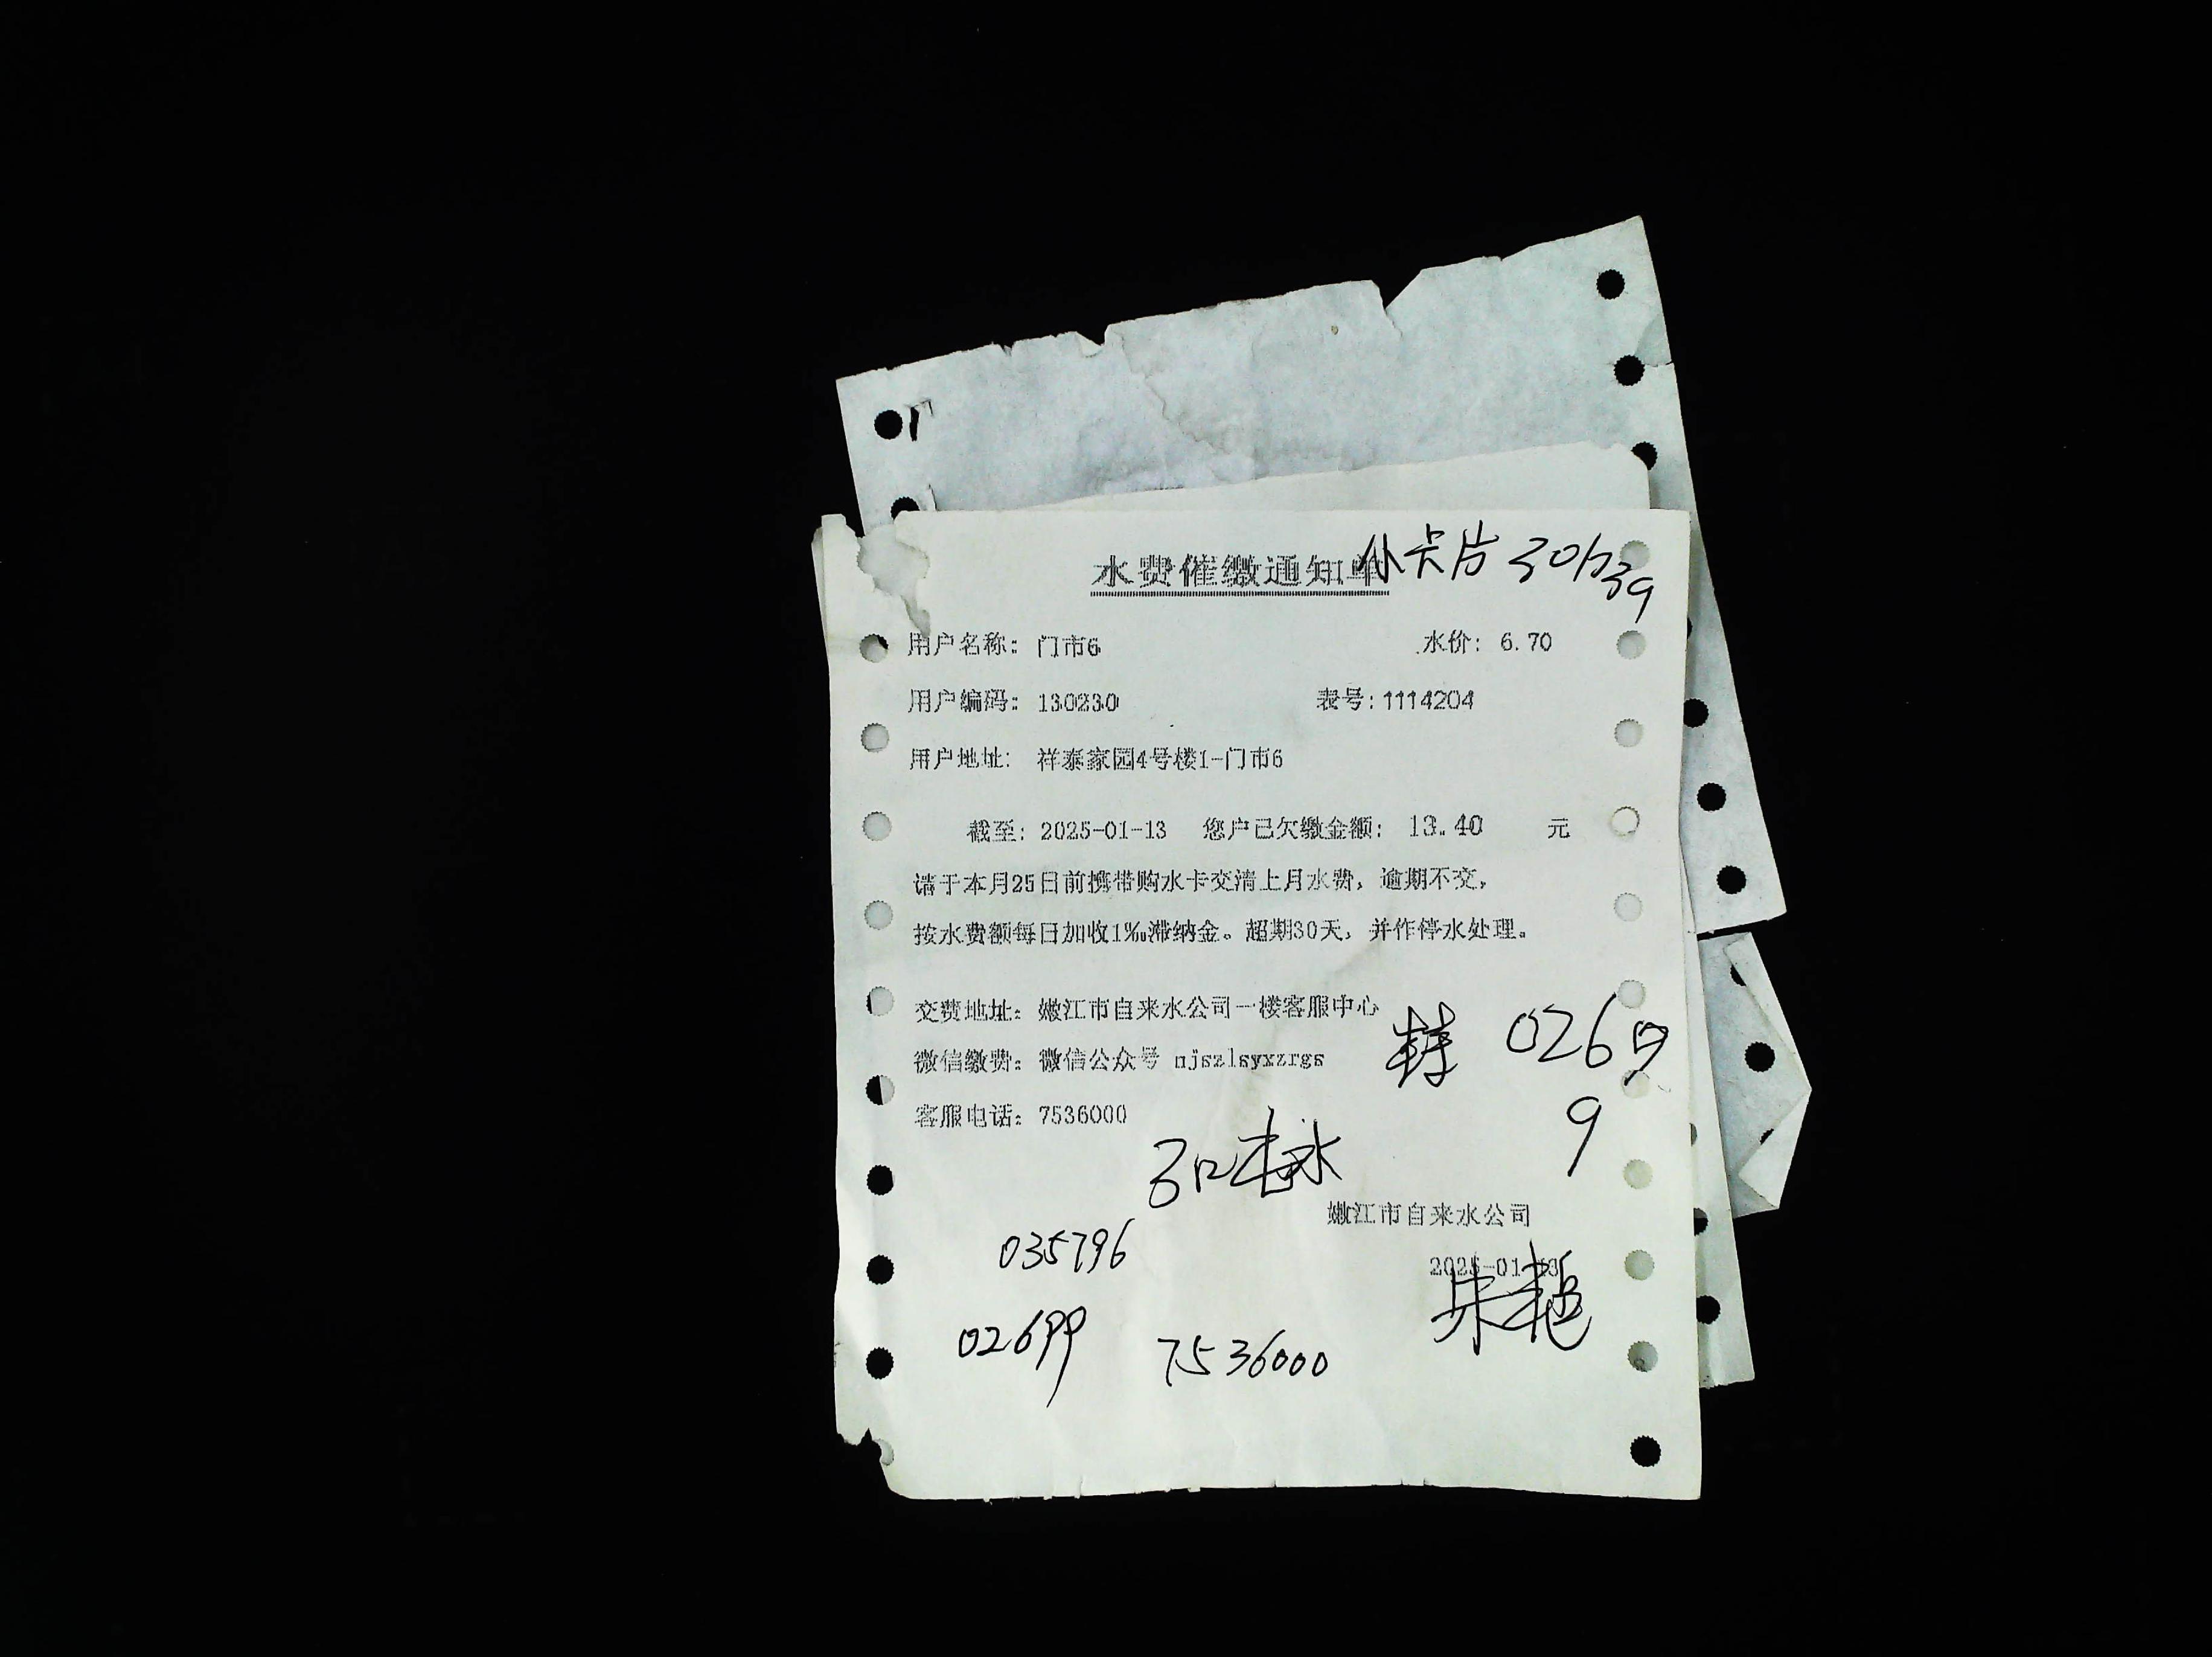 水费催缴通知单 小卡片 30
39
用户名称: 门市6 水价: 6.70
用户编码: 130230 表号:1114204
用户地址: 祥泰家园4号楼1-门市6
截至: 2025-01-13 您户已欠缴金额: 13.40 元
请于本月25日前携带购水卡交清上月水费, 逾期不交,
按水费额每日加收1‰滞纳金。超期30天, 并作停水处理。
交费地址: 嫩江市自来水公司一楼客服中心
微信缴费: 微信公众号 njszlsyxzrgs
客服电话: 7536000
026
9
嫩江市自来水公司
035796
2025-01-13
02699
7536000